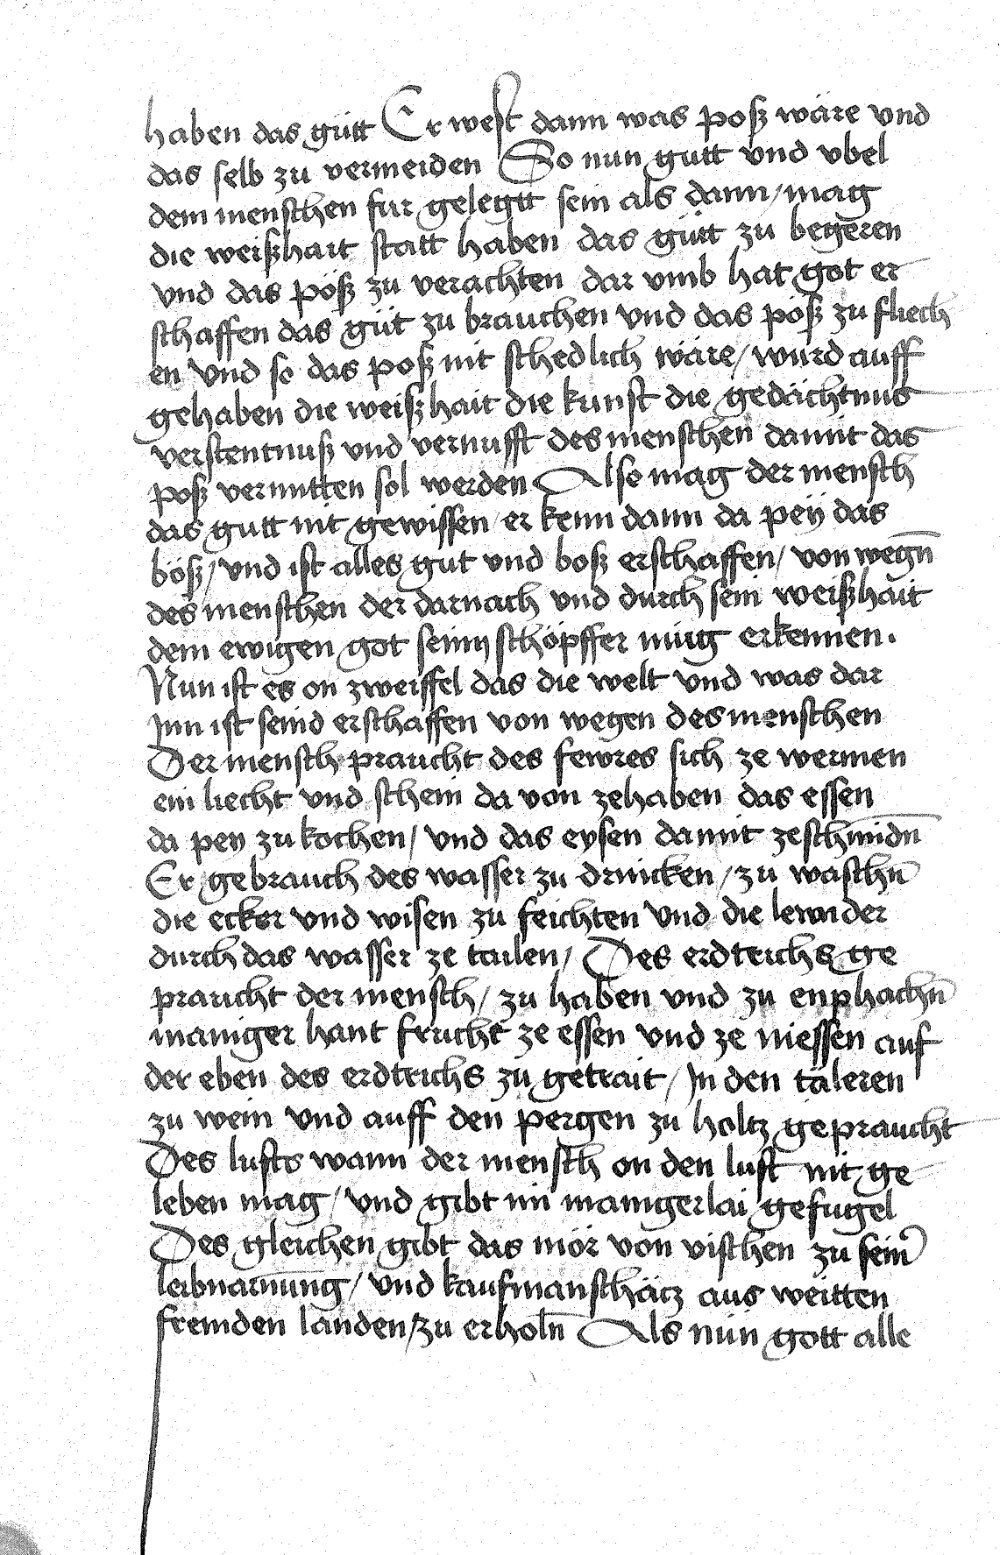 haben das gütt Er west dann was poß wäre vnd
das selb zu vermeiden So nun gutt vnd vbel
dem menschen fur gelegtt sein als dann / mag
die weißhait statt haben das gütt zu begeren
vnd das pöß zu verachten dar vmb hat got er
schaffen das güt zu brauchen vnd das pöß zu fliech
en vnd so das poß nit schedlich wäre / wurd auff
gehaben die weißhait die kunst die gedächtnus
verstentnuß vnd vernufft des menschen damit das
poß vermitten sol werden Also mag der mensch
das gutt nit gewissen / er kenn dann da peÿ das
böß / vnd ist alles gut vnd boß erschaffen / von wegn̄
des menschen der darnach vnd durch sein weißhait
dem ewigen got seinn schöpffer müg erkennen .
Nun ist es on zweiffel das die welt vnd was dar
Jnn ist seind erschaffen von wegen des menschen
Der mensch praucht des fewres sich ze wermen
ein liecht vnd schein da von zehaben das essen
da pey zu kochen / vnd das eysen damit zeschmidn̄
Er gebrauch des wasser zu drincken / zu waschn̄
die ecker vnd wisen zu feichten vnd die lennder
durch das wasser ze tailen / Des erdtrichs ge
praucht der mensch / zu haben vnd zu enphachn̄
maniger hant frucht ze essen vnd ze niessen auf
der eben des erdtrichs zu getrait / Jn den täleren
zu wein vnd auff den pergen zu holtz gepraucht
Des lufts wann der mensch on den luft nit ge
leben mag / vnd gibt im manigerlai gefugel
Des gleichen gibt das mör von vischen zu sein̄
leibnarung / vnd kaufmanschätz aus weitten
fremden landen / zu erholn̄ Als nün gott alle